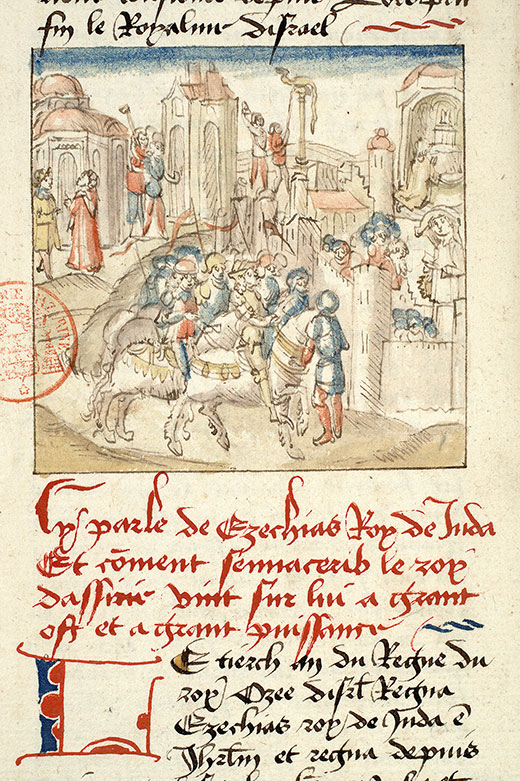 fin le Royalme disrael
Cy parle de Ezechias Roy de Juda
Et cõment sennacerib le roy
dassirie vint sur lui a grant
ost et a grant puissance
LE tierch an du Regne du
roy Ozee disrl Regna
Ezechias roy de Juda ẽ
Jhrlm̃ et regna depuis